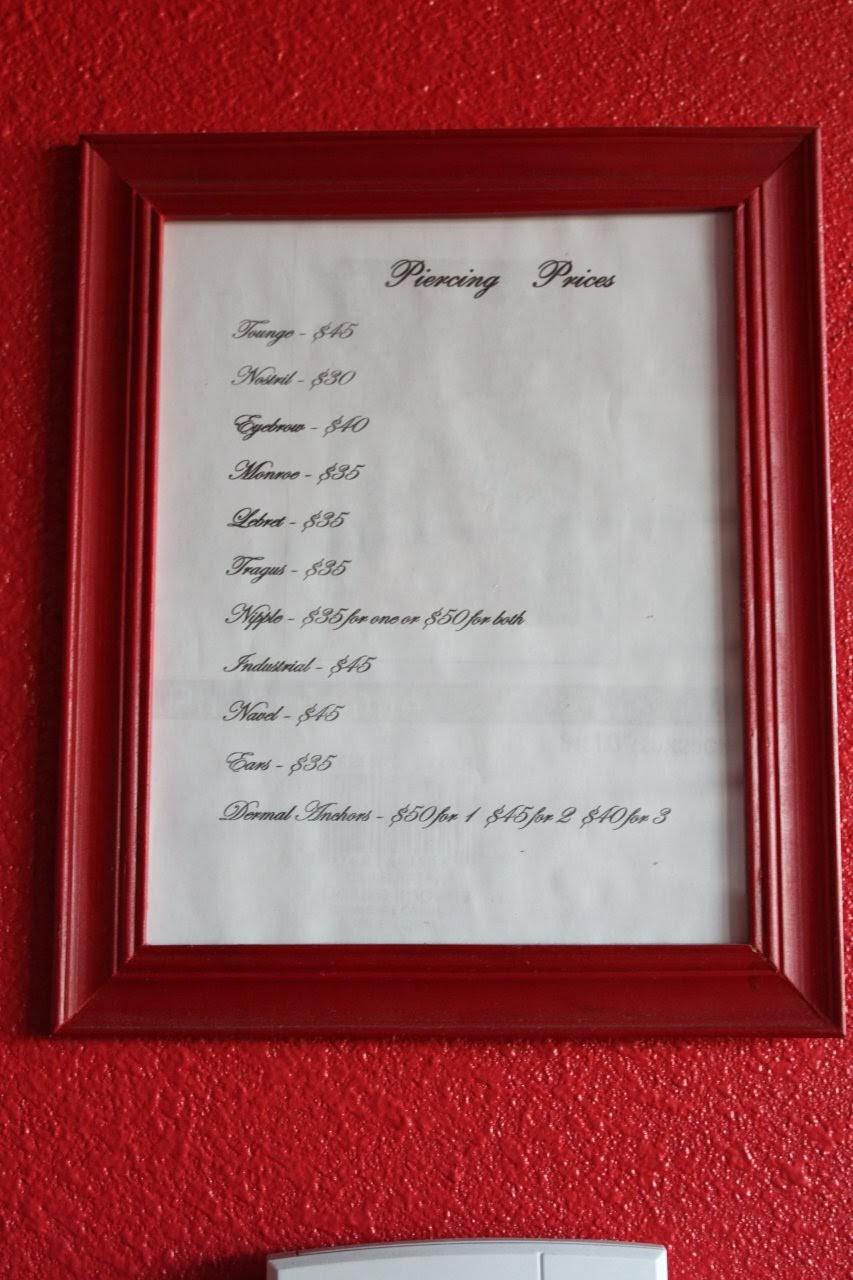 Piercing Prices
Tounge - $45
Nostril - $30
Eyebrow - $40
Monroe - $35
Lebret - $35
Tragus - $35
Nipple - $35 for one or $50 for both
Industrial - $45
Navel - $45
Ears - $35
Dermal Anchors - $50 for 1 $45 for 2 $40 for 3